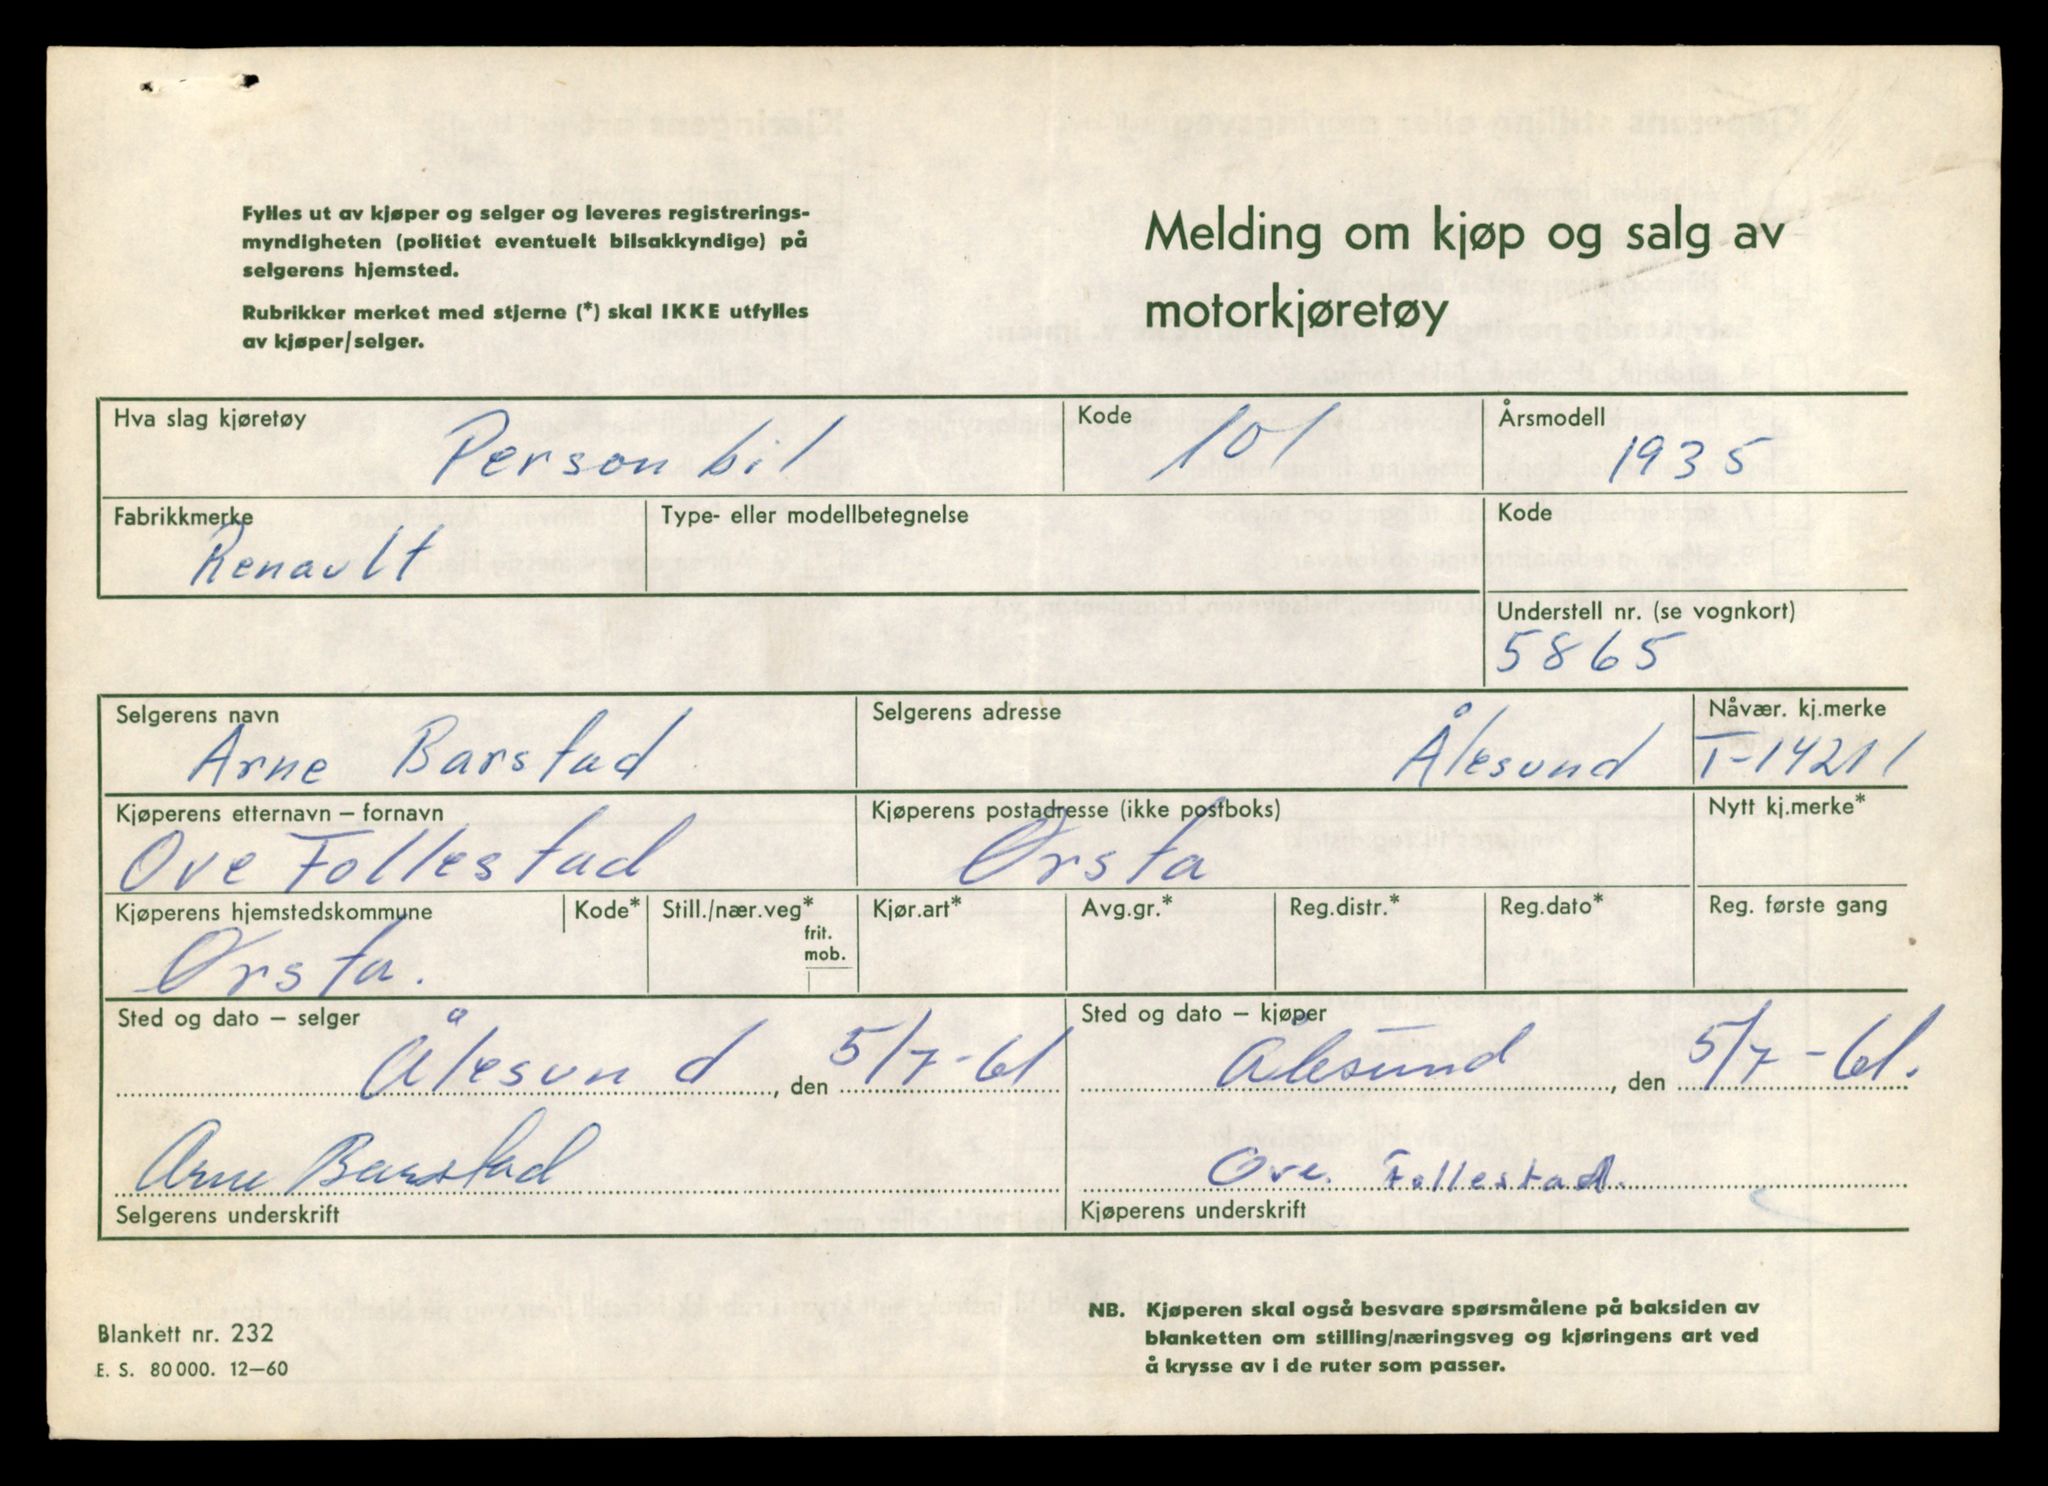 Fylles ut av kjøper og selger og leveres registrerings-
myndigheten (politiet eventuelt bilsakkyndige) på
selgerens hjemsted.
Rubrikker merket med stjerne (*) skal IKKE utfylles
av kjøper/selger.
Melding om kjøp og salg av
motorkjøretøy
Hva slag kjøretøy Personbil Kode 101 Årsmodell 1935
Fabrikkmerke Renault Type- eller modellbetegnelse Kode
Understell nr. (se vognkort)
5865
Selgerens navn Selgerens adresse Nåvær. kj.merke
Arne Barstad Ålesund T-14211
Kjøperens etternavn – fornavn Kjøperens postadresse (ikke postboks) Nytt kj.merke*
Ove Follestad Ørsta
Kjøperens hjemstedskommune Kode* Still./nær.veg* Kjør.art* Avg.gr.* Reg.distr.* Reg.dato* Reg. første gang
frit.
mob.
Ørsta.
Sted og dato – selger Sted og dato – kjøper
Ålesund, den 5/7-61 Ålesund, den 5/7-61.
Arne Barstad Ove. Follestad.
Selgerens underskrift Kjøperens underskrift
NB. Kjøperen skal også besvare spørsmålene på baksiden av
blanketten om stilling/næringsveg og kjøringens art ved
å krysse av i de ruter som passer.
Blankett nr. 232
E. S. 80 000. 12–60